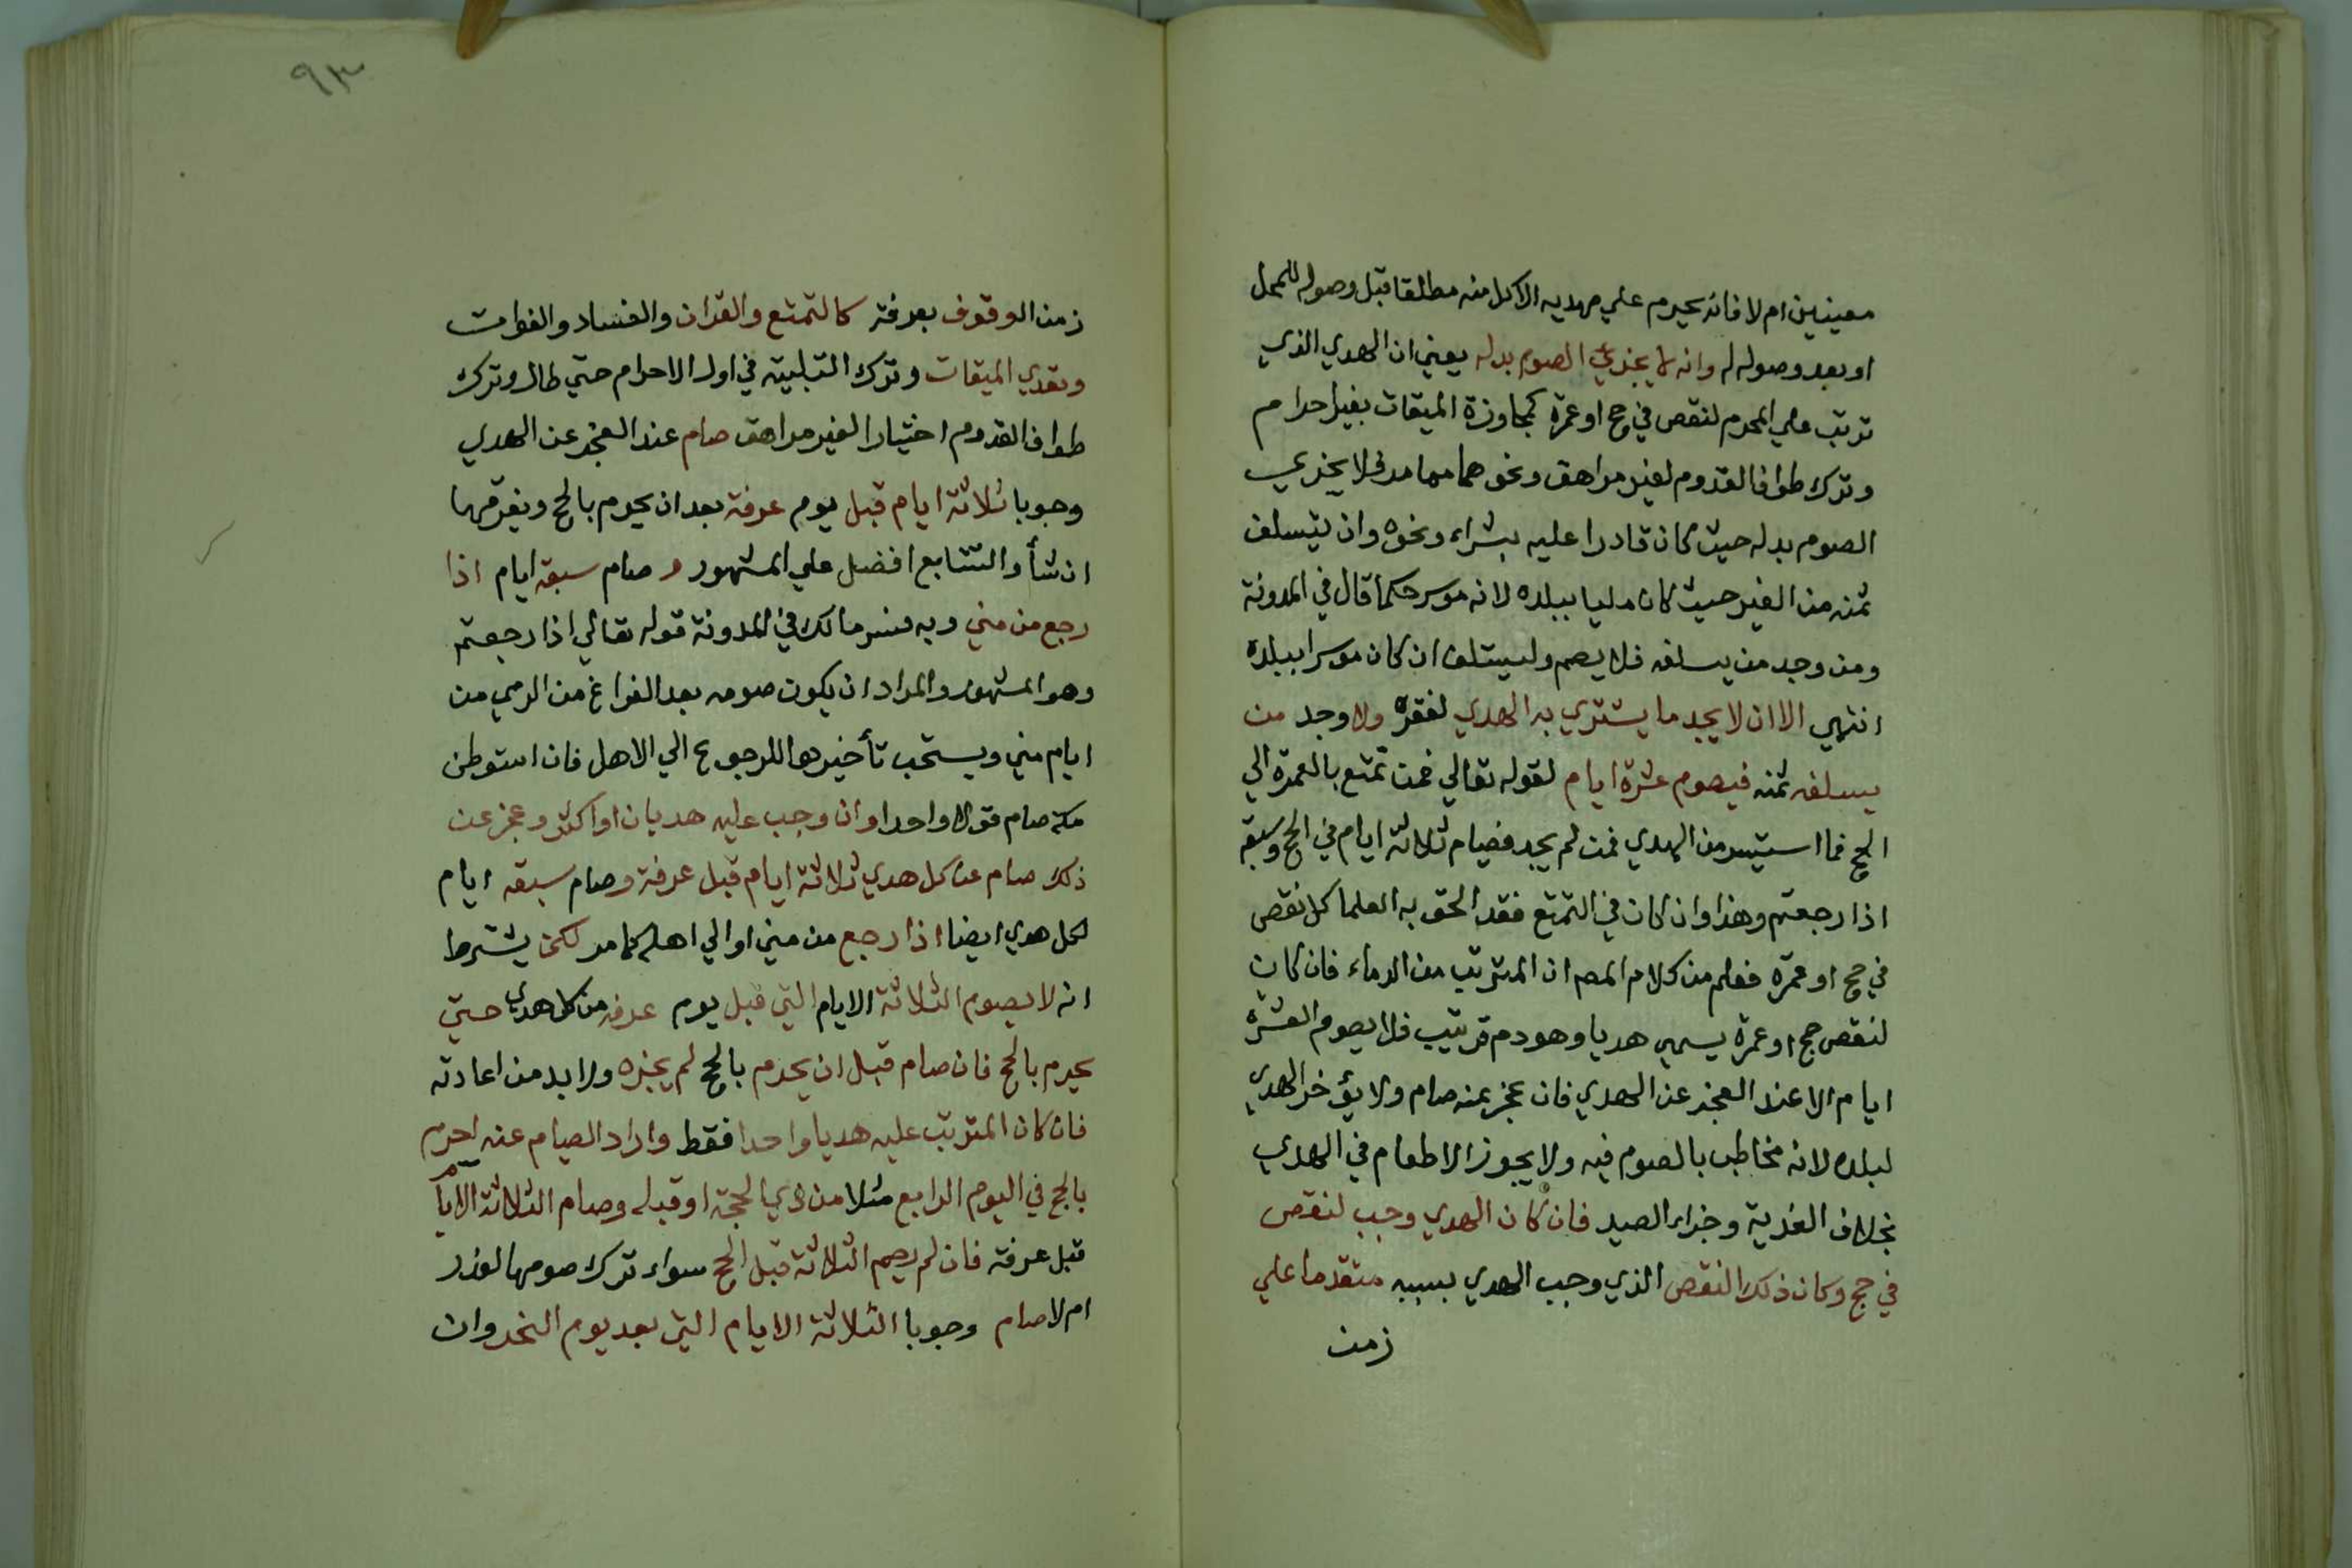 معينين ام لا فانه يحرم علي مهديه الاكل منه مطلقا قبل وصوله للمحل
او بعد وصوله له وانه لا يجزي الصوم بدله يعني ان الهدي الذي
ترتب علي المحرم لنقص في حج او عمرة كمجاوزة الميقات بغير احرام
وترك طواف القدوم لغير مراهق ونحوهما مما مر لا يجزي
الصوم بدله حيث كان قادرا عليه بشراء ونحوه وان بتسلف
ثمنه من الغير حيث كان مليا ببلده لانه موسر حكما قال في المدونة
ومن وجد من يسلفه فلا يصم وليستلف ان كان موسرا ببلده
انتهي الا ان لا يجد ما يشتري به الهدي لفقره ولا وجد من
يسلفه ثمنه فيصوم عشرة ايام لقوله تعالي فمن تمتع بالعمرة الي
الحج فما استيسر من الهدي فمن لم يجد فصيام ثلاثة ايام في الحج وسبعة
اذا رجعتم وهذا وان كان في التمتع فقد الحق به العلما كل نقص
في حج او عمرة فعلم من كلام المص ان المترتب من الدماء فان كان
لنقص حج او عمرة يسمي هديا وهو دم ترتيب فلا يصوم العشرة
ايام الا عند العجز عن الهدي فان عجز عنه صام ولا يؤخر الهدي
لبلده لانه مخاطب بالصوم فيه ولا يجوز الاطعام في الهدي
بخلاف الفدية وجزاء الصيد فان كان الهدي وجب لنقص
في حج وكان ذلك النقص الذي وجب الهدي بسببه متقدما علي
زمن
٩٣
زمن الوقوف بعرفة كالتمتع والقران والفساد والفوات
وتعدي الميقات وترك التلبية في اول الاحرام حتي طال وترك
طواف القدوم اختيارا لغير مراهق صام عند العجز عن الهدي
وجوبا ثلاثة ايام قبل يوم عرفة بعد ان يحرم بالحج ويفرقها
ان شأ والتتابع افضل علي المشهور وصام سبعة ايام اذا
رجع من مني وبه فسر مالك في المدونة قوله تعالي اذا رجعتم
وهو المشهور والمراد ان يكون صومه بعد الفراغ من الرمي من
ايام مني ويستحب تأخيرها للرجوع الي الاهل فان استوطن
مكة صام قولا واحدا وان وجب عليه هديان او اكثر وعجز عن
ذلك صام عن كل هدي ثلاثة ايام قبل عرفة وصام سبعة ايام
لكل هدي ايضا اذا رجع من مني او الي اهله كما مر لكن يشترط
انه لا يصوم الثلاثة الايام التي قبل يوم عرفة من كل هدي حتي
يحرم بالحج فان صام قبل ان يحرم بالحج لم يجزه ولا بد من اعادته
فان كان المترتب عليه هديا واحدا فقط واراد الصيام عنه احرم
بالحج في اليوم الرابع مثلا من ذي الحجة او قبله وصام الثلاثة الايام
قبل عرفة فان لم يصم الثلاثة قبل الحج سواء ترك صومها لعذر
ام لا صام وجوبا الثلاثة الايام التي بعد يوم النحر وان